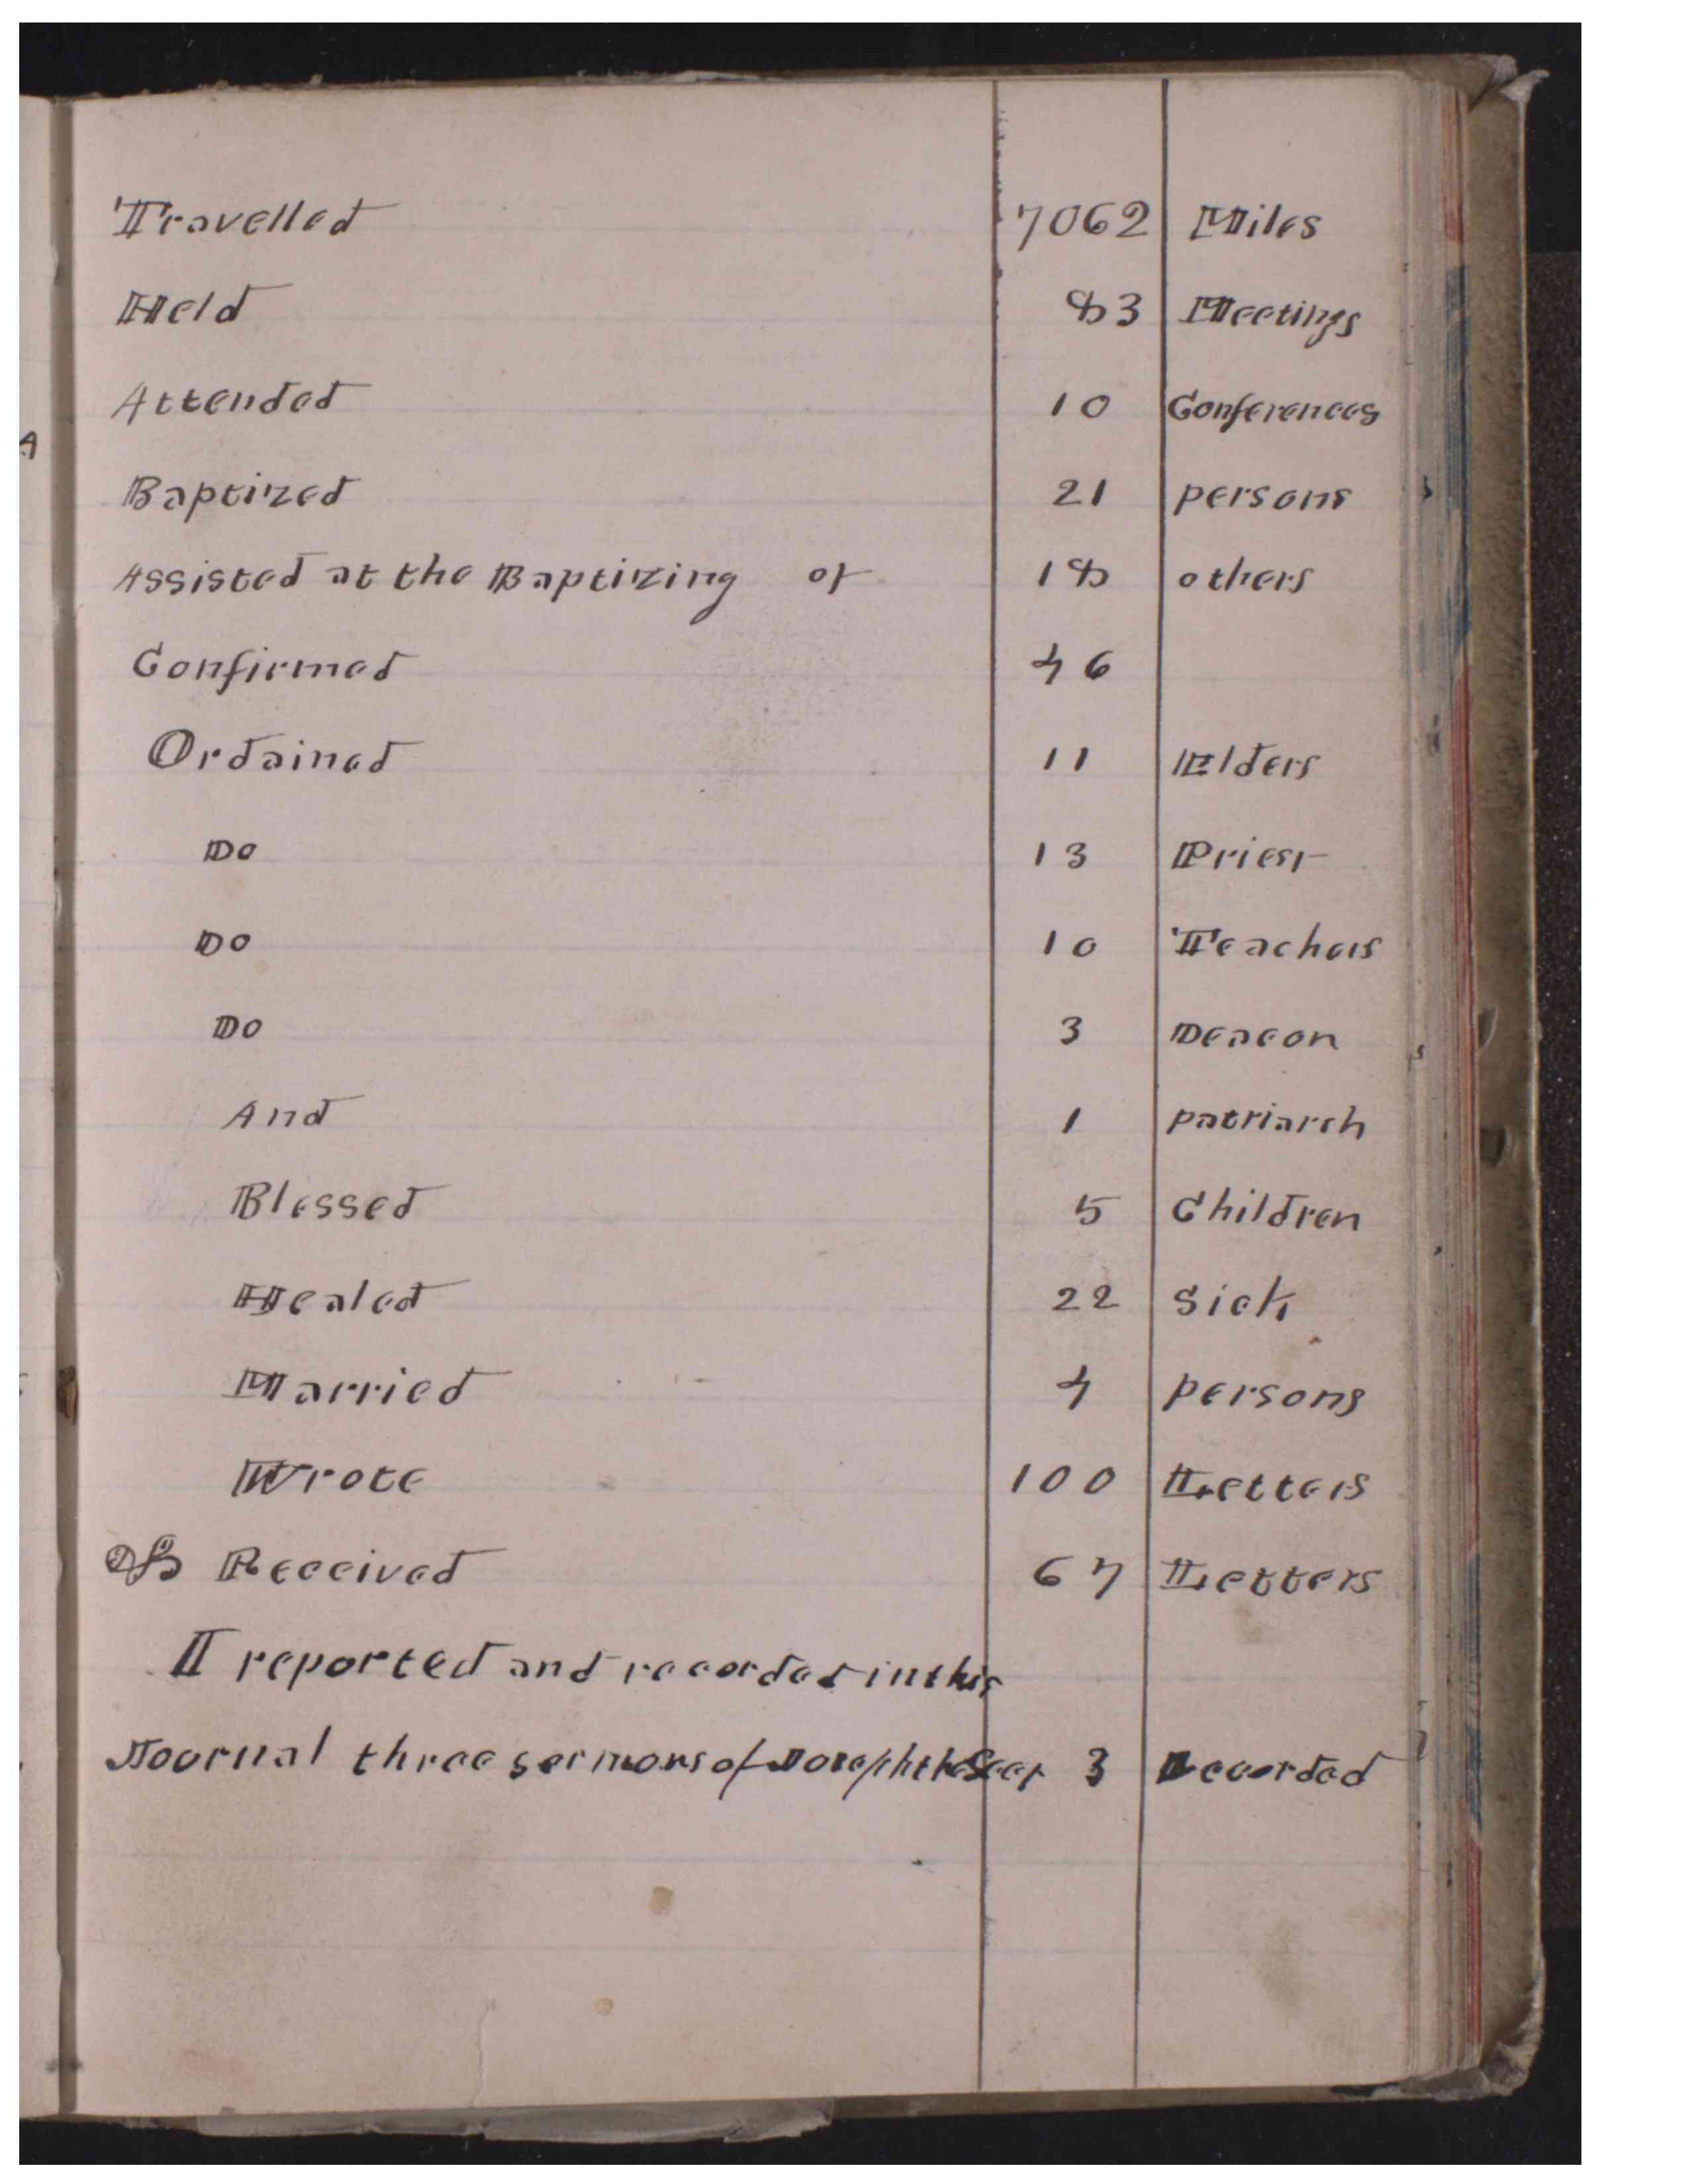 Travelled 7062 Miles
Held 83 Meetings
Attended 10 Conferences
Baptized 21 persons
Assisted at the Baptizing of 18 others
Confirmed 46
Ordained 11 Elders
Do 13 Priest
Do 10 Teachers
Do 3 Deacon
And 1 patriarch
Blessed 5 Children
Healed 22 Sick
Married 4 persons
Wrote 100 Letters
& Received 67 Letters
I reported and recorded in this
Journal three sermons of Joseph the Seer 3 Recorded